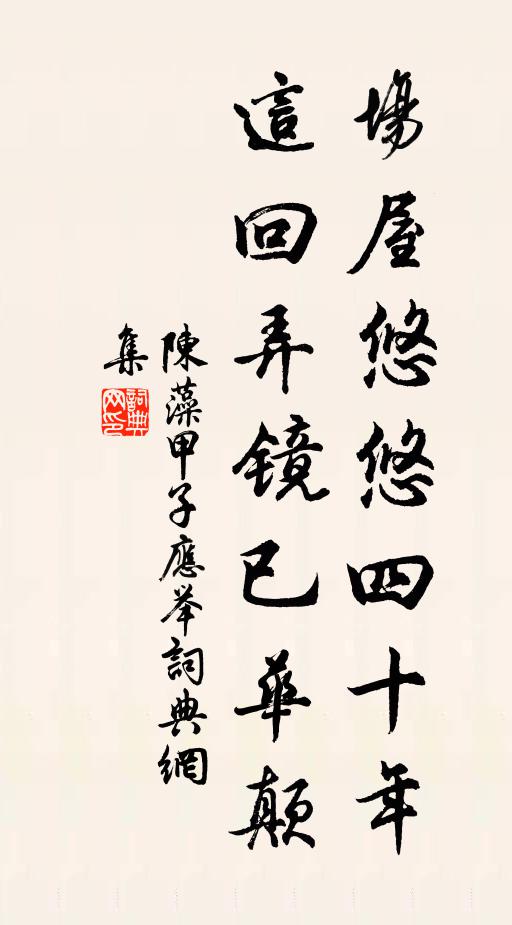 場屋悠悠四十年
這回弄镜已華顛
陳藻甲子應举詞典網
集
詞典网印